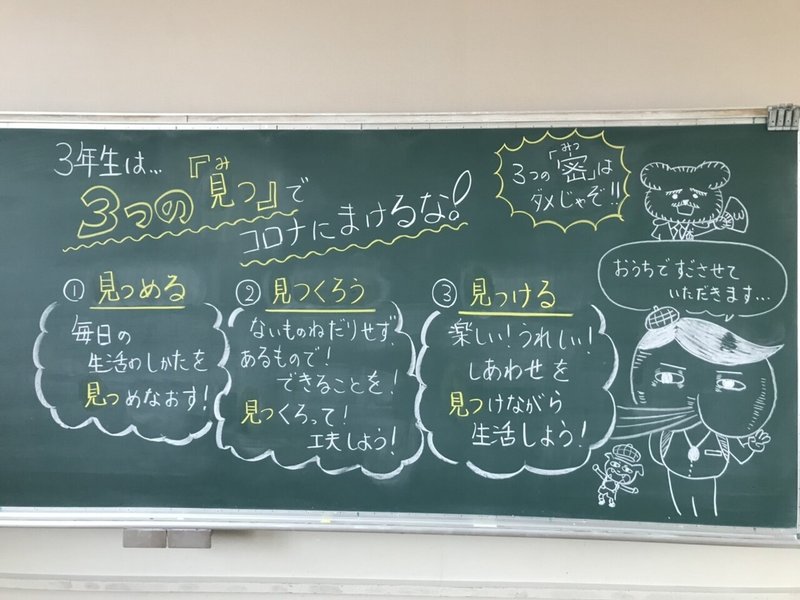 3年生は…
3つの『見つ』で
み
コロナにまけるな!
3つの「密」は
みつ
ダメじゃぞ!!
① 見つめる
毎日の
生活のしかたを
見つめなおす!
② 見つくろう
ないものねだりせず、
あるもので!
できることを!
見つくろって!
工夫しよう!
③ 見つける
楽しい!うれしい!
しあわせを
見つけながら
生活しよう!
おうちですごさせて
いただきます…